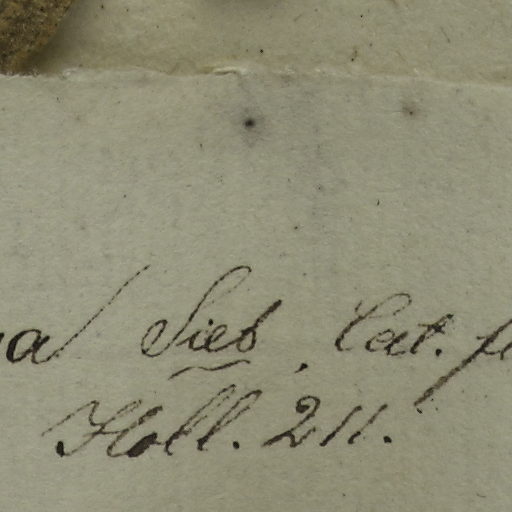 Sieb. Cat. 
Holl. 211.